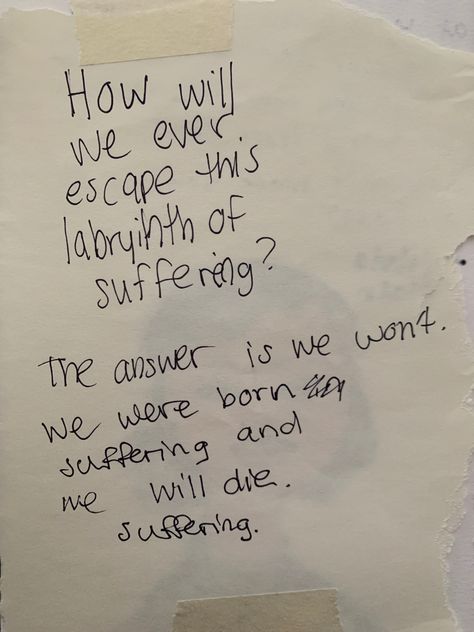 How will
we ever.
escape this
labryinth of
suffering?
The answer is we won't.
we were born
suffering and
we will die.
suffering.